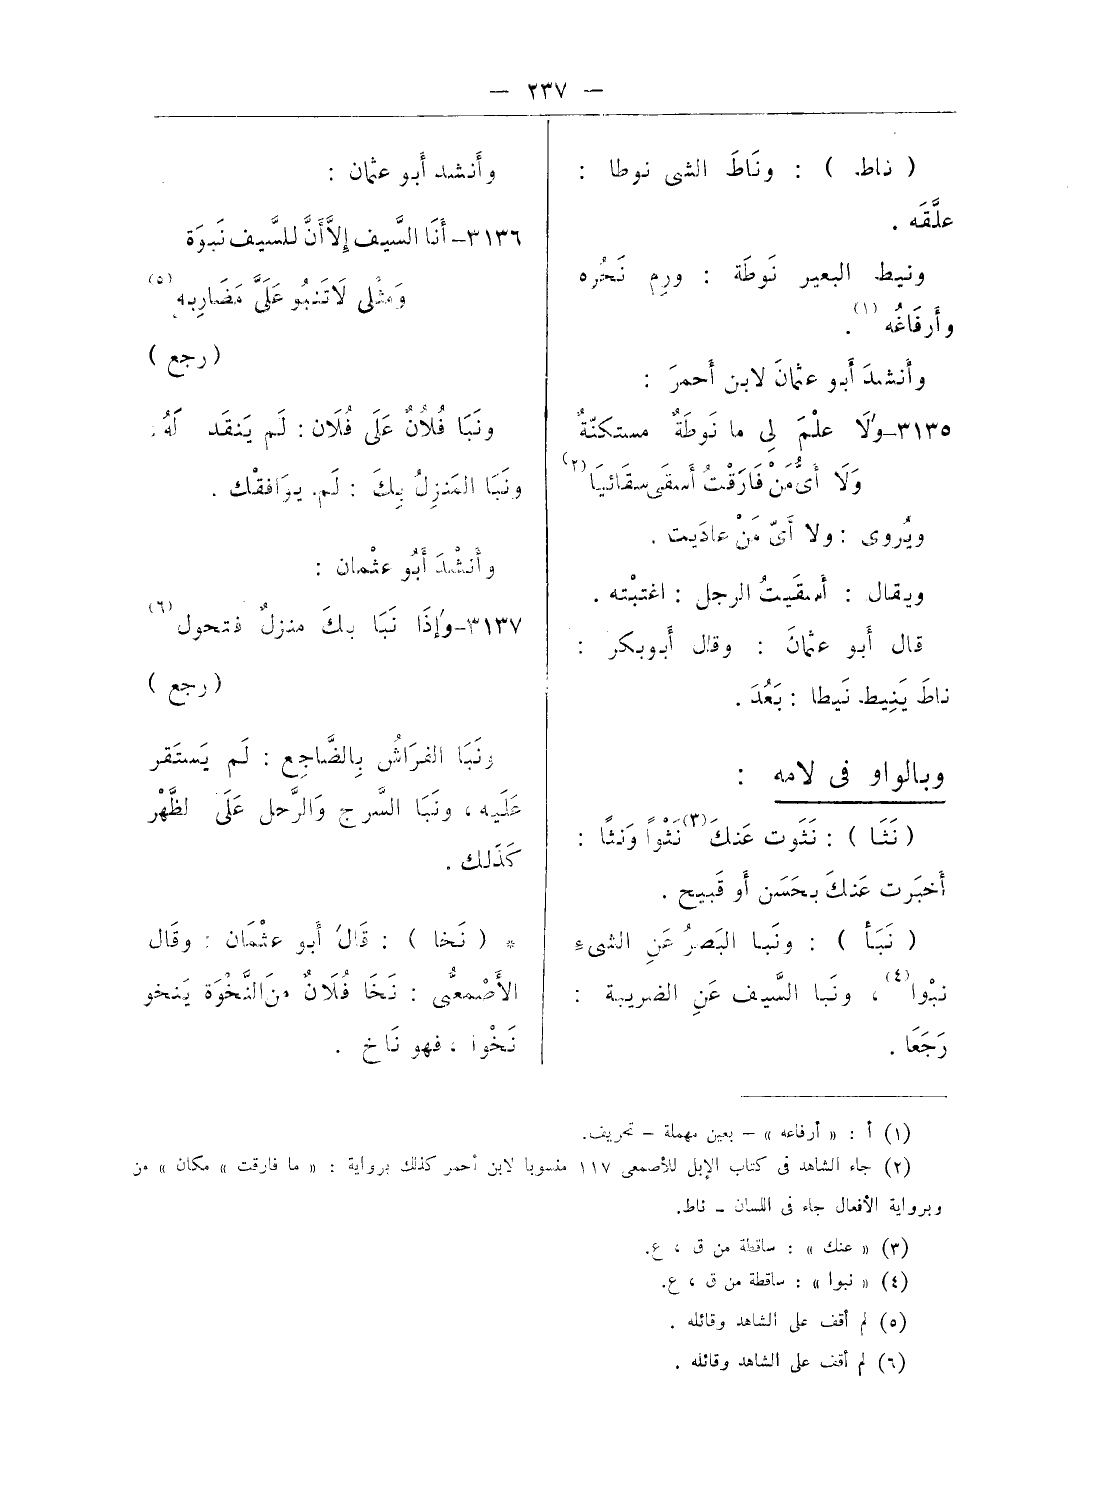 — ٢٣٧ —
( ناط ) : ونَاطَ الشى نوطا :
علَّقَه .
ونيط البعير نَوطَة : ورِم نَحْره
وأَرفَاغُه (١).
وأَنشدَ أَبو عثمانَ لابن أَحمرَ :
٣١٣٥–وَلَا علْمَ لِى ما نَوطَةٌ مستكنّةٌ
وَلَا أَىُّ مَنْ فَارَقْتُ أَسقَى سقَائيَا (٢)
ويُروى : ولا أَىّ مَنْ عادَيت .
ويقال : أَسقَيتُ الرجل : اغتبْته .
قال أَبو عثمانَ : وقال أَبوبكر :
ناطَ يَنِيط نَيطا : بَعُدَ .
وبالواو فى لامه :
( نَثَا ) : نَثَوت عَنكَ (٣) نَثْواً ونثًا :
أَخبَرت عَنكَ بحَسَن أَو قَبيح .
( نَبَأ ) : ونَبا البَصرُ عَنِ الشىء
نبْوا (٤) ، ونَبا السَّيف عَنِ الضريبة :
رَجَعَا .
وأَنشد أَبو عثمان :
٣١٣٦– أَنَا السَّيف إِلاَّ أَنَّ للسَّيف نَبوَة
وَمثْلى لَاتَنبُو عَلَىَّ مَضَارِبه (٥)
( رجع )
ونَبَا فُلَانٌ عَلَى فُلَان : لَم يَنقَد لَهُ .
ونَبَا المَنزِلُ بِكَ : لَم يوَافقْك .
وأَنشْدَ أَبُو عثْمان :
٣١٣٧–وَإِذَا نَبَا بكَ منزلٌ فتحول (٦)
( رجع )
ونَبَا الفرَاشُ بِالضَّاجِع : لَم يَستَقر
عَلَيه ، ونَبَا السَّرج وَالرَّحل عَلَى لظَّهْر
كَذَلك .
* ( نَخا ) : قَالَ أَبو عثْمَان : وقَال
الأَصْمعىُّ : نَخَا فُلَانٌ منَ النَّخْوَة يَنخو
نَخْوا ، فهو نَاخ .
(١) أ : « أرفاعه » – بعين مهملة – تحريف.
(٢) جاء الشاهد فى كتاب الإبل للأصمعى ١١٧ منسوبا لابن أحمر كذلك برواية : « ما فارقت » مكان » من
وبرواية الأفعال جاء فى اللسان – ناط.
(٣) « عنك » : ساقطة من ق ، ع.
(٤) « نبوا » : ساقطة من ق ، ع.
(٥) لم أقف على الشاهد وقائله .
(٦) لم أقف على الشاهد وقائله .